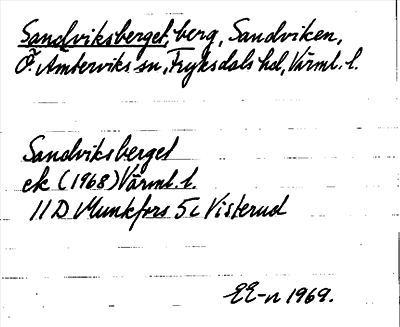 Sandviksberget, berg, Sandviken,
Ö. Ämterviks sn, Fryksdals hd, Värml. l.
Sandviksberget
ek (1968) Värml. l.
11D Munkfors 5c Visterud
EE-n 1969.